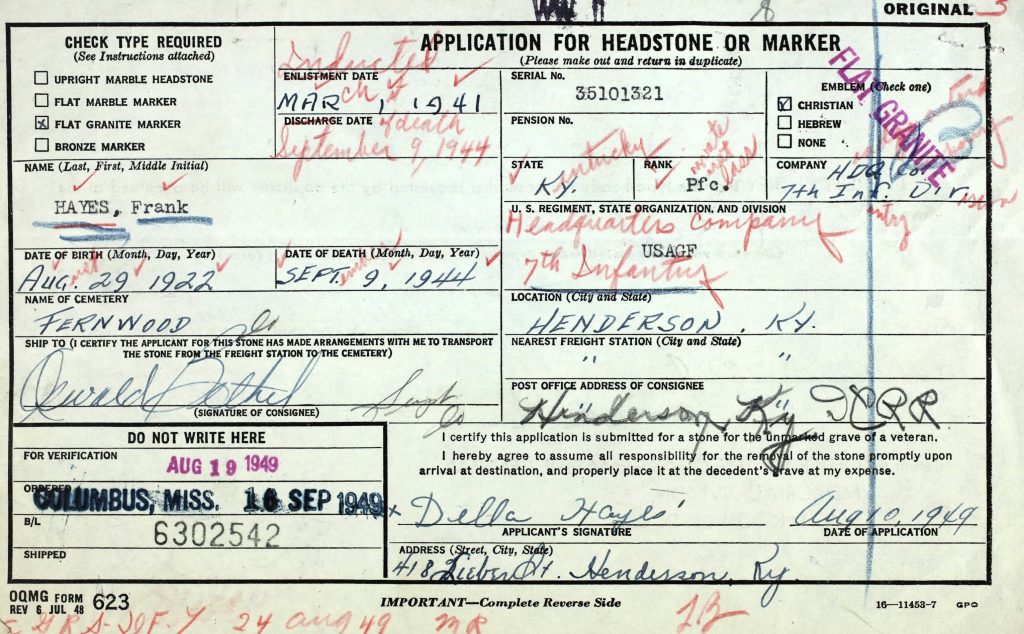 WW II
8
ORIGINAL
CHECK TYPE REQUIRED
(See Instructions attached)
UPRIGHT MARBLE HEADSTONE
FLAT MARBLE MARKER
FLAT GRANITE MARKER
BRONZE MARKER
APPLICATION FOR HEADSTONE OR MARKER
(Please make out and return in duplicate)
Inducted
ENLISTMENT DATE
MAR ch 1, 1941
DISCHARGE DATE of death
September 9, 1944
SERIAL No.
35101321
PENSION No.
EMBLEM (Check one)
CHRISTIAN
HEBREW
NONE
FLAT GRANITE
NAME (Last, First, Middle Initial)
HAYES, Frank
STATE
KY. entucky
RANK
Pfc.
private first class
COMPANY
HDQ Co.
7th Inf. Div.
U. S. REGIMENT, STATE ORGANIZATION, AND DIVISION
Headquarters Company
USAGF
7th Infantry
DATE OF BIRTH (Month, Day, Year)
AUG. 29 1922
DATE OF DEATH (Month, Day, Year)
SEPT. 9, 1944
NAME OF CEMETERY
FERNWOOD
LOCATION (City and State)
HENDERSON, KY.
SHIP TO (I CERTIFY THE APPLICANT FOR THIS STONE HAS MADE ARRANGEMENTS WITH ME TO TRANSPORT
THE STONE FROM THE FREIGHT STATION TO THE CEMETERY)
NEAREST FREIGHT STATION (City and State)
" "
Oswald Bethel
Supt
(SIGNATURE OF CONSIGNEE)
POST OFFICE ADDRESS OF CONSIGNEE
Henderson, Ky
DO NOT WRITE HERE
FOR VERIFICATION
AUG 19 1949
ORDERED
COLUMBUS, MISS. 16 SEP 1949
B/L
6302542
SHIPPED
I certify this application is submitted for a stone for the unmarked grave of a veteran.
I hereby agree to assume all responsibility for the removal of the stone promptly upon
arrival at destination, and properly place it at the decedent's grave at my expense.
x Della Hayes Aug 10, 1949
APPLICANT'S SIGNATURE DATE OF APPLICATION
ADDRESS (Street, City, State)
418 Lieber St. Henderson, Ky.
OQMG FORM
REV 6 JUL 48 623
IMPORTANT—Complete Reverse Side
16—11453-7 GPO
24 Aug 49 MR